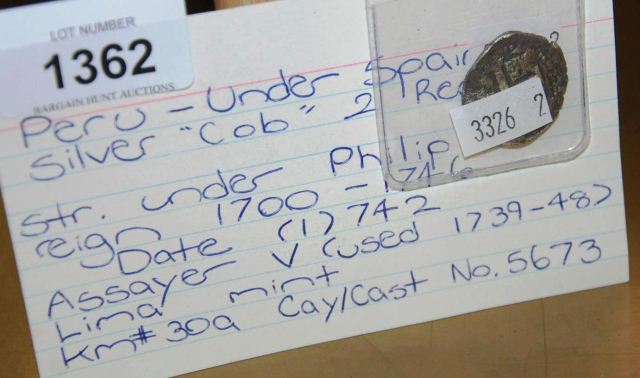 LOT NUMBER
1362
BARGAIN HUNT AUCTIONS
Peru - Under Spain
Silver "Cob" 2 Re
3326 2
Str. under Philip
reign 1700 - 1746
Date (1)742
Assayer V (used 1739-48)
Lima mint
Km# 30a Cay/Cast No. 5673